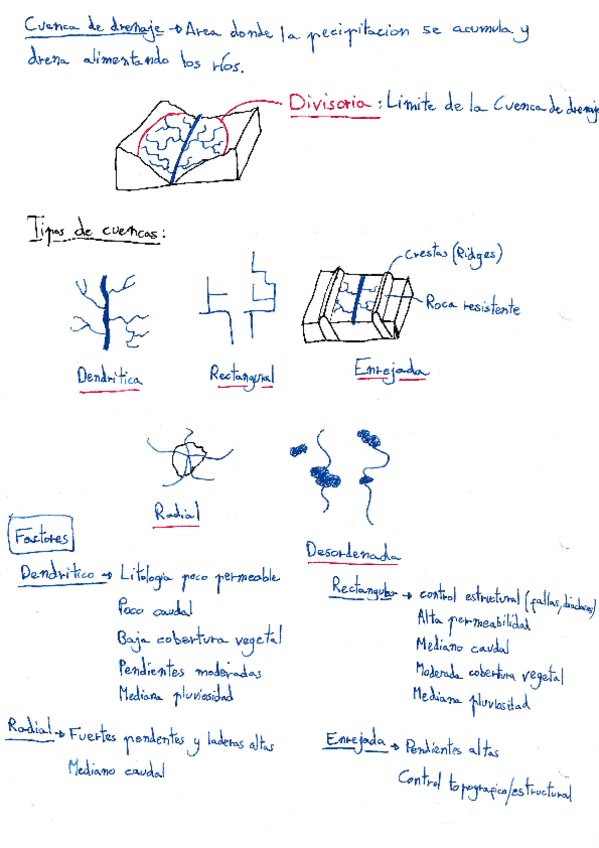 Cuenca de drenaje → Area donde la pecipitacion se acumula y
drena alimentando los ríos.
Divisoria: Limite de la Cuenca de drenaje
Tipos de cuencas:
Crestas (Ridges)
Roca resistente
Dendrítica
Rectangural
Enrejada
Radial
Desordenada
Factores
Dendrítico → Litologia poco permeable
Poco caudal
Baja cobertura vegetal
Pendientes moderadas
Mediana pluviosidad
Rectangular → control estructural (fallas, diaclasas)
Alta permeabilidad
Mediano caudal
Moderada cobertura vegetal
Mediana pluviosidad
Radial → Fuertes pendentes y laderas altas
Mediano caudal
Enrejada → Pendientes altas
Control topografico/estructural